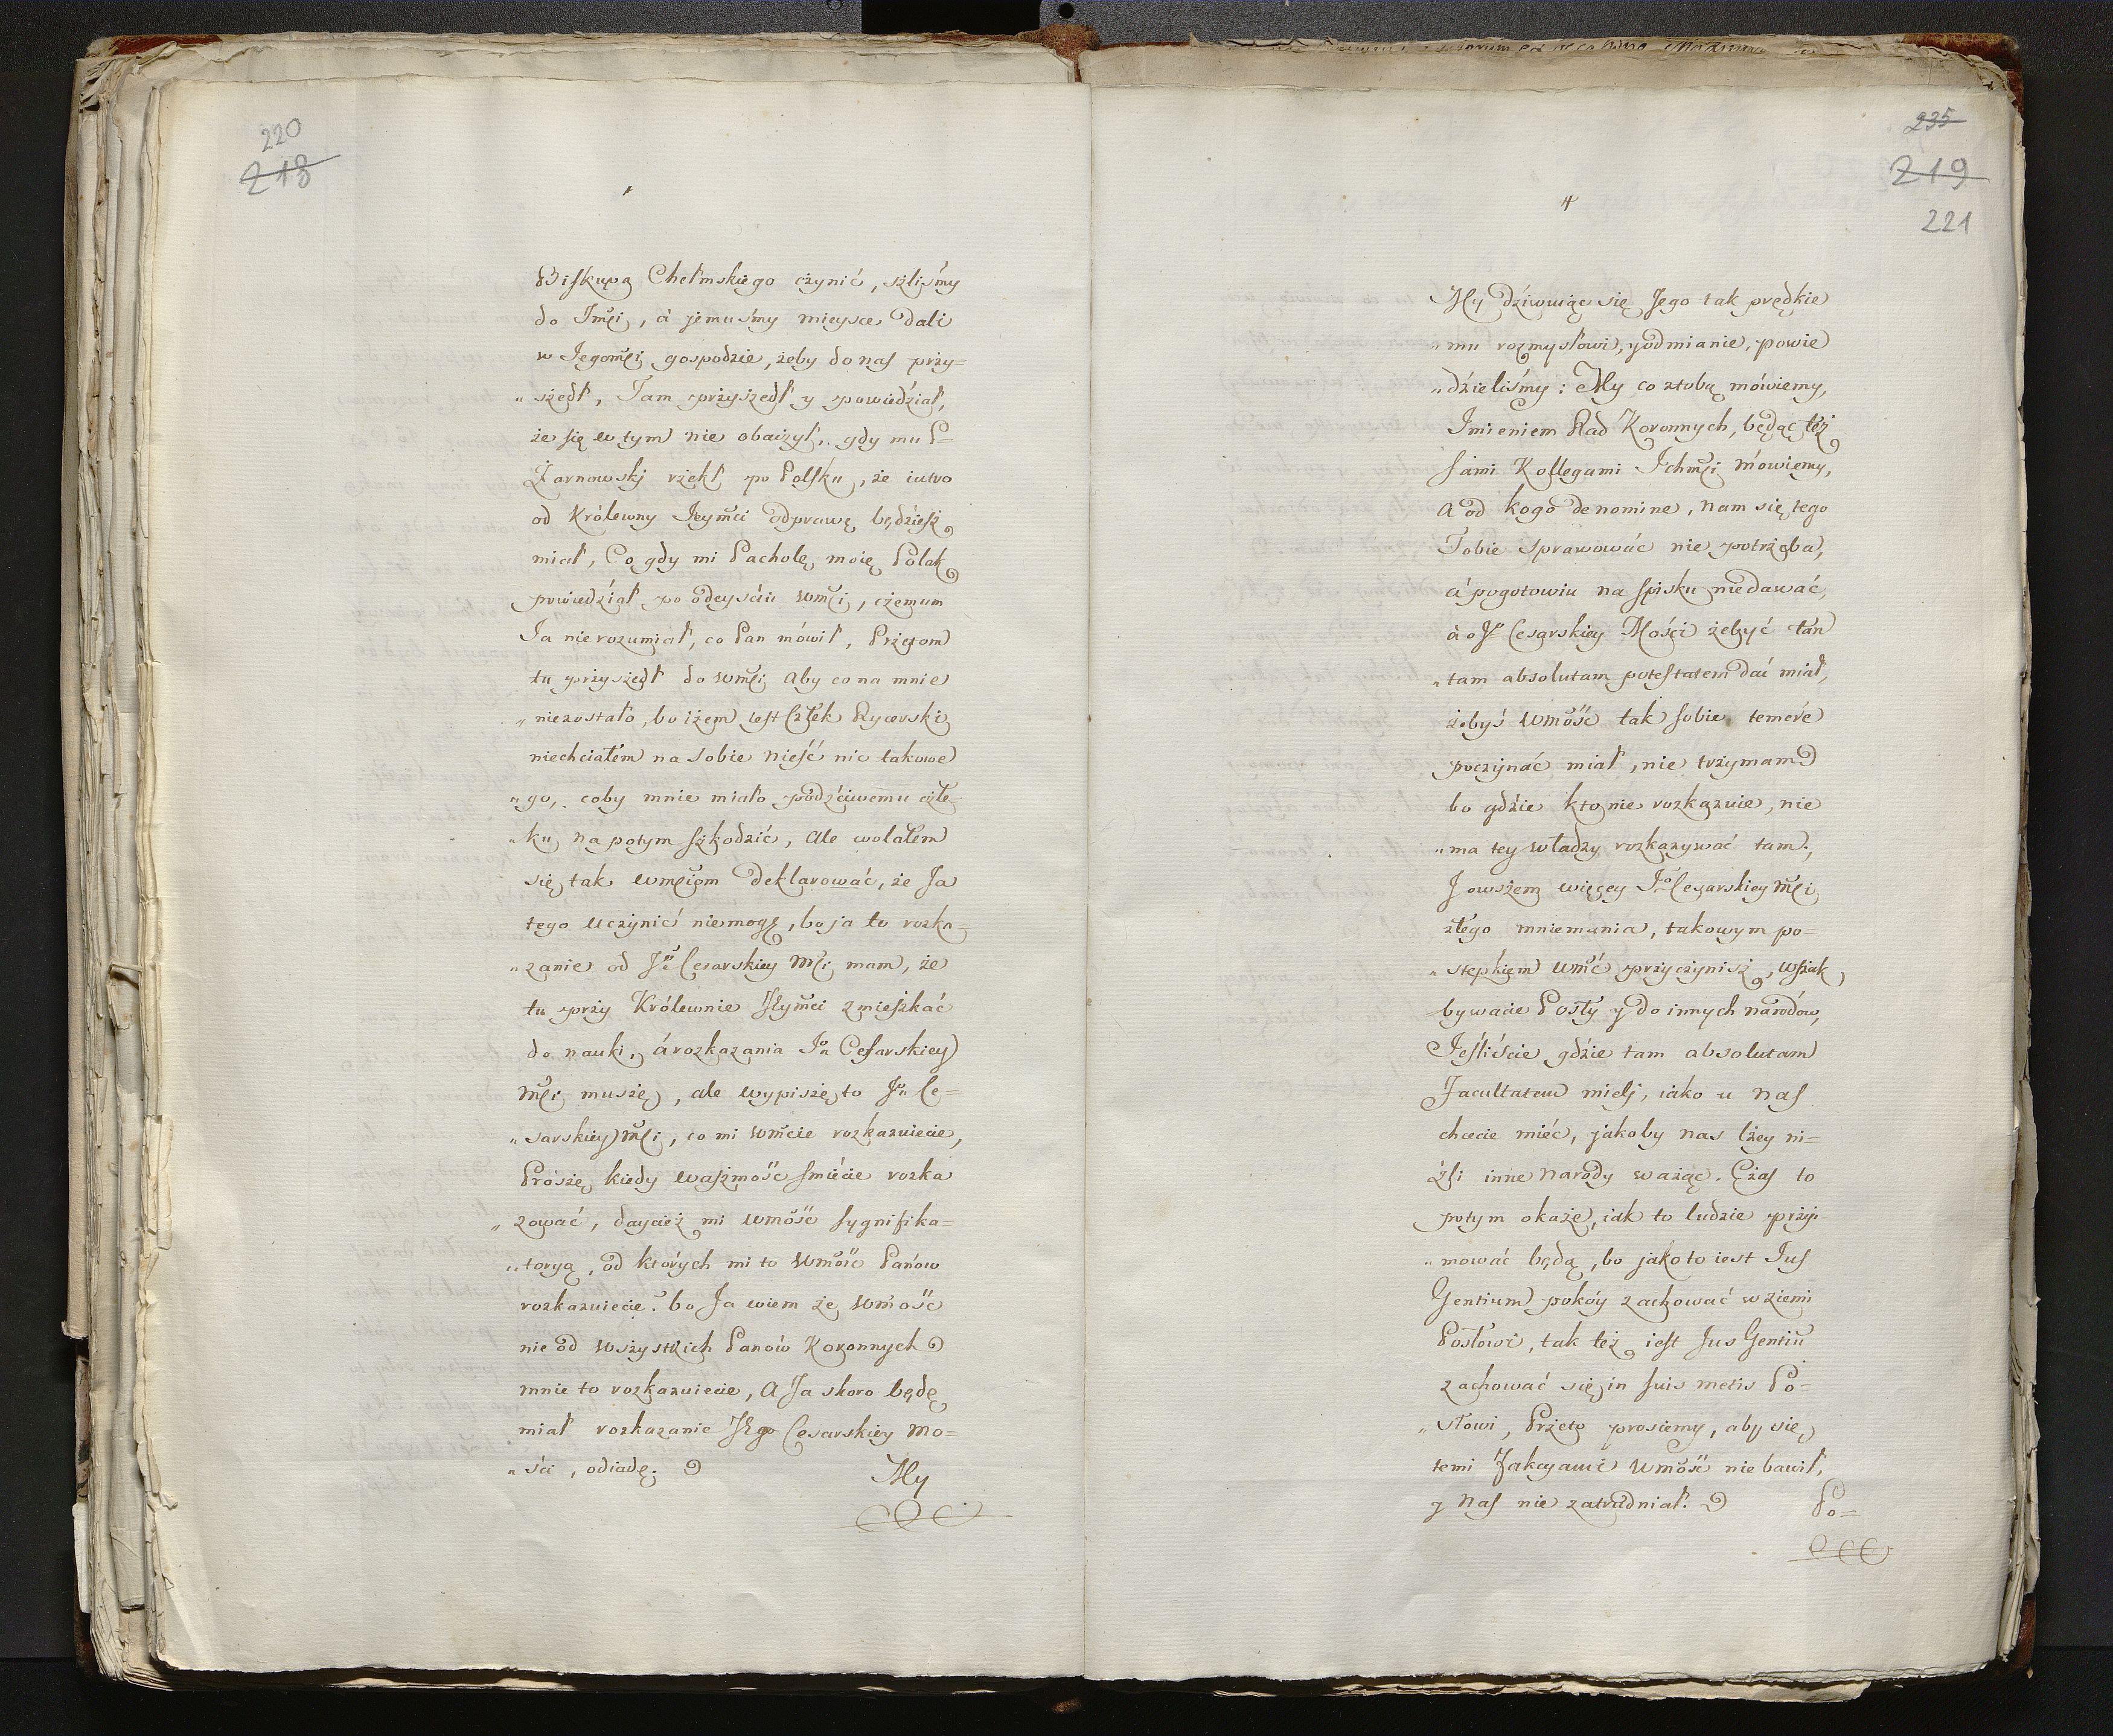 220
218
Biskupa Chełmskiego czynić, szliśmy
do Jmći, á jemuśmy mieysce dali
w Jegomći gospodzie, żeby do nas przy=
„szedł, Tam przyszedł y powiedział,
że się w tym nie obaczył, gdy mu P=
Żarnowskj rzekł po Polsku, że iutro
od Królewny Jeymći odprawę będziesz
miał, Co gdy mi Pacholę moię Polak
powiedział po odeyściu Wmći, czemum
Ja nie rozumiał, co Pan mówił, Przetom
tu przyszedł do Wmći aby co na mnie
„niezostało, bo iżem iest Człek Rycerski
niechciałem na sobie nieść nic takowe
„go, coby mnie miało podźciwemu człe=
„ku na potym szkodzić, ale wolałem
się tak Wmćiom deklarować, że Ja
tego uczynić niemogę, bo ja to rozka=
„zanie od Jo Cesarskiey Mći mam, że
tu przy Królewnie Jeymći zmieszkać
do nauki, á rozkazania Jo Cesarskiey
Mći muszę, ale wypiszę to Jo Ce=
„sarskiey Mći, co mi Wmćie rozkazuiecie,
Proszę kiedy Waszmość śmiécie rozka
„zować, daycież mi Wmość sygnifika=
„toryą, od których mi to Wmość Panów
rozkazuiecie? bo Ja wiem że Wmość
nie od wszystkich Panów Koronnych
mnie to rozkazuiecie, A Ja skoro będę
miał rozkazanie JEgo Cesarskiey Mo=
„ści, odiadę.
My
235
219
221
4
My dziwuiąc się Jego tak prędkie
„mu rozmysłowi, y odmianie, powie
„dzieliśmy: My co ztobą mówiemy,
Imieniem Rad Koronnych, będąc też
sami Kollegami Ichmći mówiemy,
a od kogo de nomine, nam się tego
Tobie sprawować nie potrzeba,
á pogotowiu na spisku niedawać,
à o Jo Cesarskiey Mości żebyć tan
„tam absolutam potestatem dać miał,
żebyś Wmość tak sobie temere
poczynać miał, nie trzymam
bo gdzie kto nie rozkazuie, nie
„ma tey władzy rozkazywać tam,
Jowszem więcey Jo Cesarskiey Mći
złego mniemania, takowym po=
„stepkiem Wmć przyczynisz, wszak
bywacie Posły y do innych narodow,
Jeśliście gdzie tam absolutam
Facultatem mielj, iako u nas
chcecie mieć, jakoby nas lżey ni=
źli inne narody ważąc. Czas to
potym okaże, iak to ludzie przy=
„mować będą, bo jako to iest Jus
Gentium pokóy zachować w ziemi
Posłowi, tak też iest Jus Gentiū
zachować się in suis metis Po=
„słowi, Przeto prosiemy, aby się
temi Fakcyami Wmość nie bawił,
y nas nie zatrudniał.
Po=